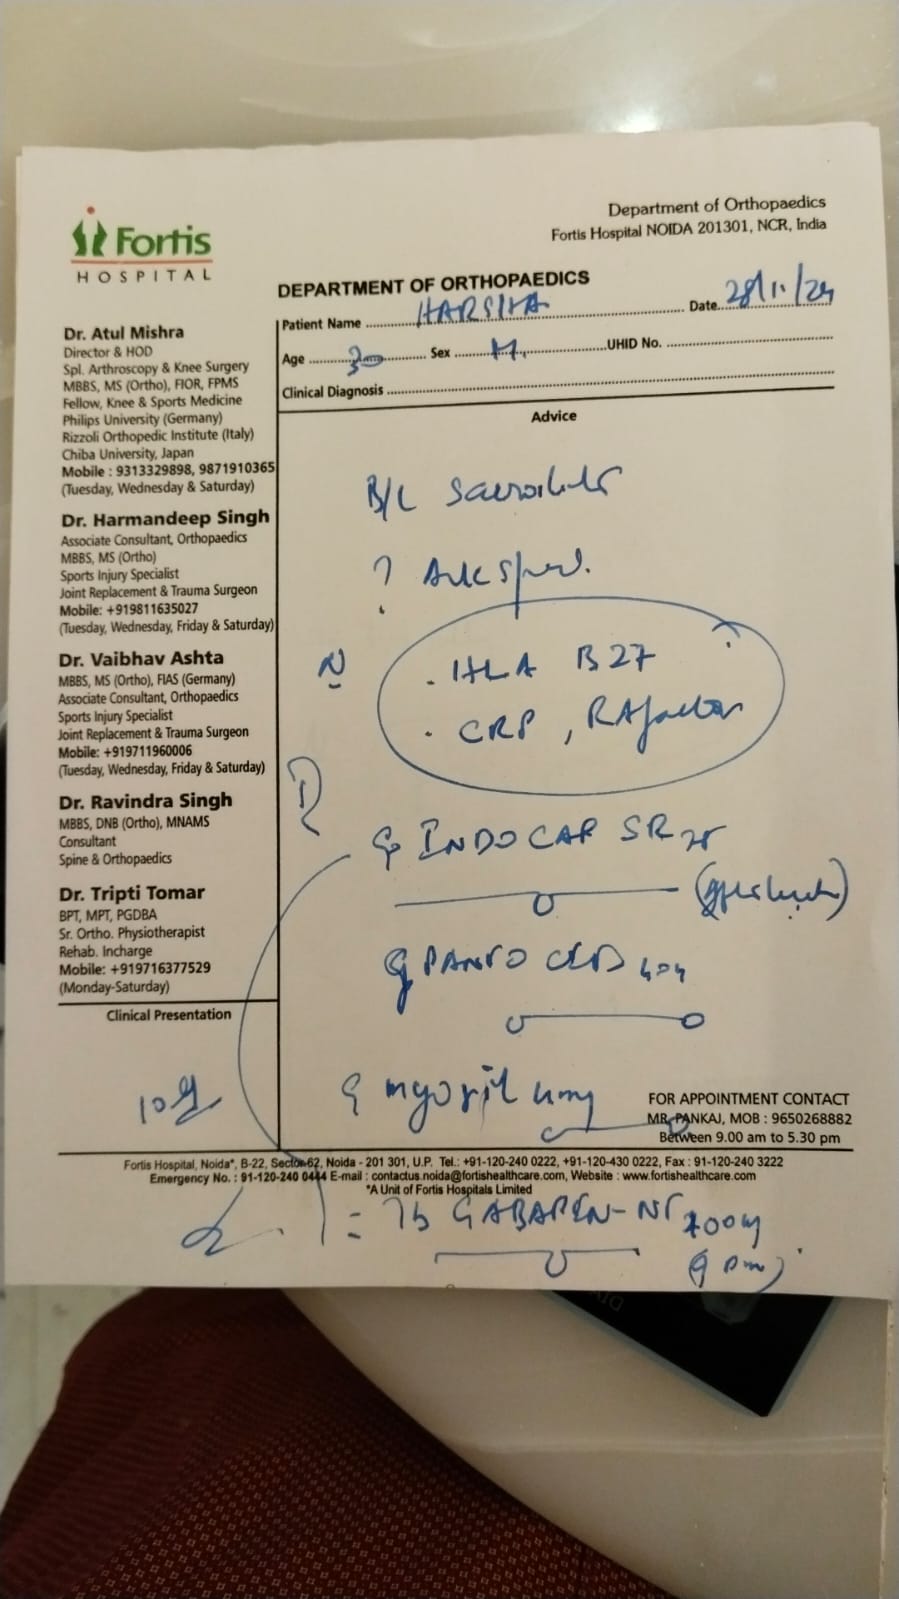 Fortis
HOSPITAL
Department of Orthopaedics
Fortis Hospital NOIDA 201301, NCR, India
DEPARTMENT OF ORTHOPAEDICS
Patient Name HARSHA Date 28/11/24
Age 30 Sex M. UHID No.
Clinical Diagnosis
Advice
Dr. Atul Mishra
Director & HOD
Spl. Arthroscopy & Knee Surgery
MBBS, MS (Ortho), FIOR, FPMS
Fellow, Knee & Sports Medicine
Philips University (Germany)
Rizzoli Orthopedic Institute (Italy)
Chiba University, Japan
Mobile : 9313329898, 9871910365
(Tuesday, Wednesday & Saturday)
Dr. Harmandeep Singh
Associate Consultant, Orthopaedics
MBBS, MS (Ortho)
Sports Injury Specialist
Joint Replacement & Trauma Surgeon
Mobile: +919811635027
(Tuesday, Wednesday, Friday & Saturday)
Dr. Vaibhav Ashta
MBBS, MS (Ortho), FIAS (Germany)
Associate Consultant, Orthopaedics
Sports Injury Specialist
Joint Replacement & Trauma Surgeon
Mobile: +919711960006
(Tuesday, Wednesday, Friday & Saturday)
Dr. Ravindra Singh
MBBS, DNB (Ortho), MNAMS
Consultant
Spine & Orthopaedics
Dr. Tripti Tomar
BPT, MPT, PGDBA
Sr. Ortho. Physiotherapist
Rehab. Incharge
Mobile: +919716377529
(Monday-Saturday)
Clinical Presentation
B/L
?
. HLA B27
. CRP, RA factor
INDOCAP SR
PANTOCID
GABAPEN-NT
FOR APPOINTMENT CONTACT
MR. PANKAJ, MOB : 9650268882
Between 9.00 am to 5.30 pm
Fortis Hospital, Noida*, B-22, Sector-62, Noida - 201 301, U.P. Tel.: +91-120-240 0222, +91-120-430 0222, Fax : 91-120-240 3222
Emergency No. : 91-120-240 0444 E-mail : contactus.noida@fortishealthcare.com, Website : www.fortishealthcare.com
*A Unit of Fortis Hospitals Limited